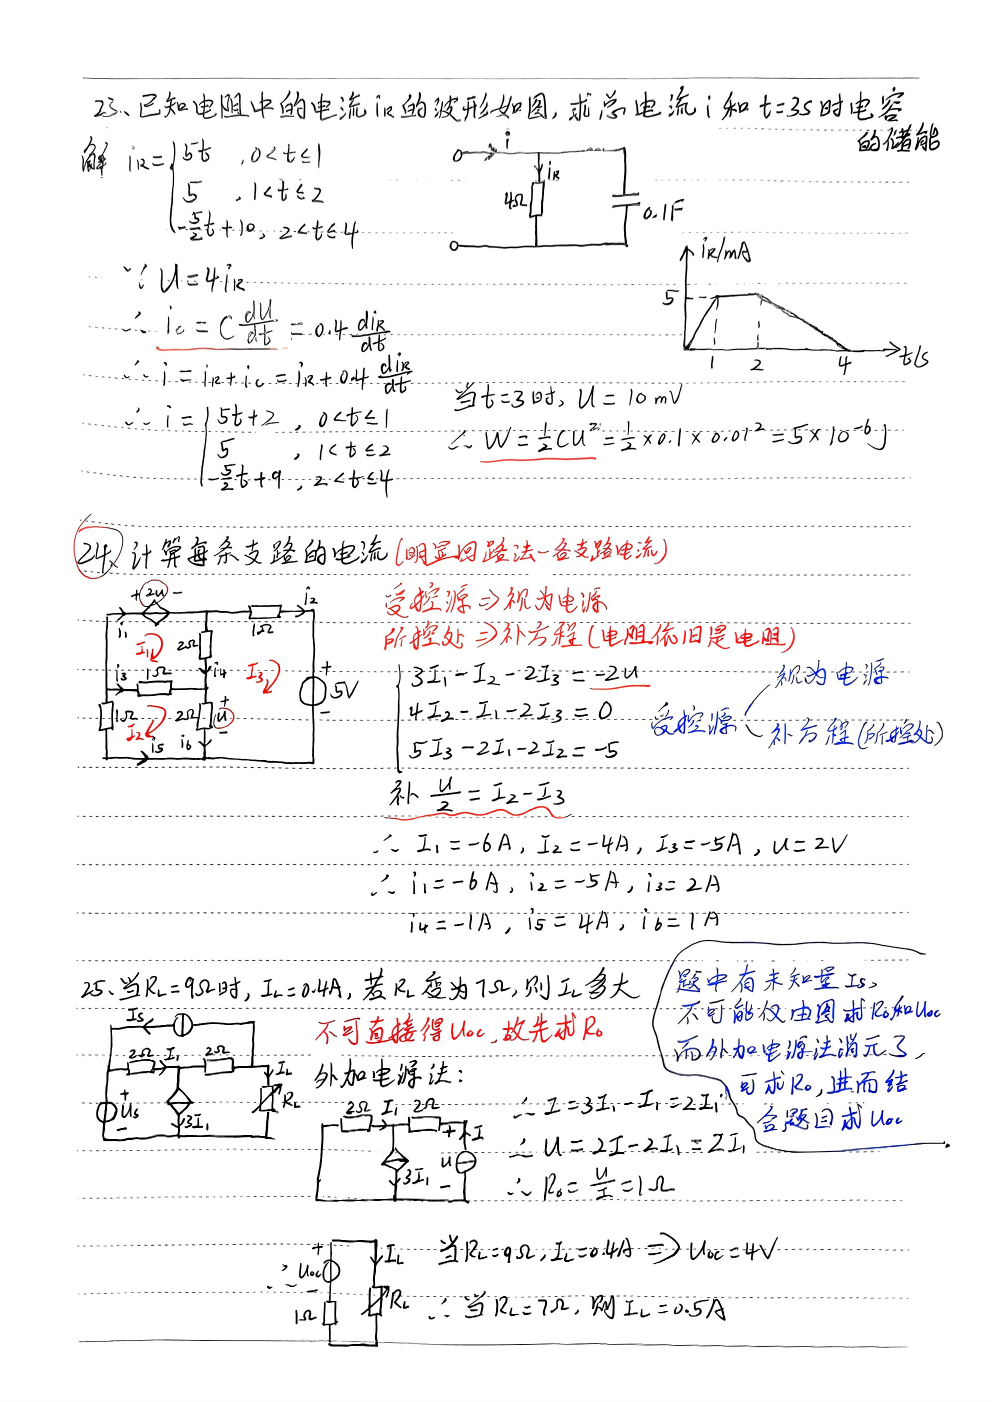 23、已知电阻中的电流iR的波形如图,求总电流i和t=3s时电容
的储能
解 iR= 5t ,0<t≤1
5 ,1<t≤2
-5/2t+10, 2<t≤4
i
iR
4Ω
0.1F
iR/mA
5
1 2 4 t/s
∵ U=4iR
∴ ic = C dU/dt = 0.4 diR/dt
∴ i = iR+ic = iR+0.4 diR/dt
∴ i = 5t+2 , 0<t≤1
5 , 1<t≤2
-5/2t+9 , 2<t≤4
当t=3时, U=10mV
∴ W=½CU²=½×0.1×0.01²=5×10⁻⁶J
24、计算每条支路的电流(明显回路法-各支路电流)
+ 2u -
i1
i2
I1
2Ω
1Ω
i3
1Ω
i4
I3
+
5V
-
1Ω
I2
2Ω
+
u
-
i5
i6
受控源⇒视为电源
所控处⇒补方程(电阻依旧是电阻)
3I1-I2-2I3=-2u
4I2-I1-2I3=0
5I3-2I1-2I2=-5
补 u/2 = I2-I3
受控源
视为电源
补方程(所控处)
∴ I1=-6A, I2=-4A, I3=-5A, u=2V
∴ i1=-6A, i2=-5A, i3=2A
i4=-1A, i5=4A, i6=1A
25、当RL=9Ω时, IL=0.4A, 若RL变为7Ω,则IL多大
Is
2Ω I1 2Ω
IL
+
Us
-
3I1
RL
不可直接得Uoc,故先求R0
外加电源法:
2Ω I1 2Ω
+ I
u
-
3I1
∴ I=3I1-I1=2I1
∴ U=2I-2I1=2I1
∴ R0=U/I=1Ω
题中有未知量Is,
不可能仅由图求R0和Uoc
而外加电源法消元了,
可求R0,进而结
合题目求Uoc
∴
+
Uoc
-
1Ω
IL
RL
当RL=9Ω, IL=0.4A ⇒ Uoc=4V
∴ 当RL=7Ω, 则IL=0.5A